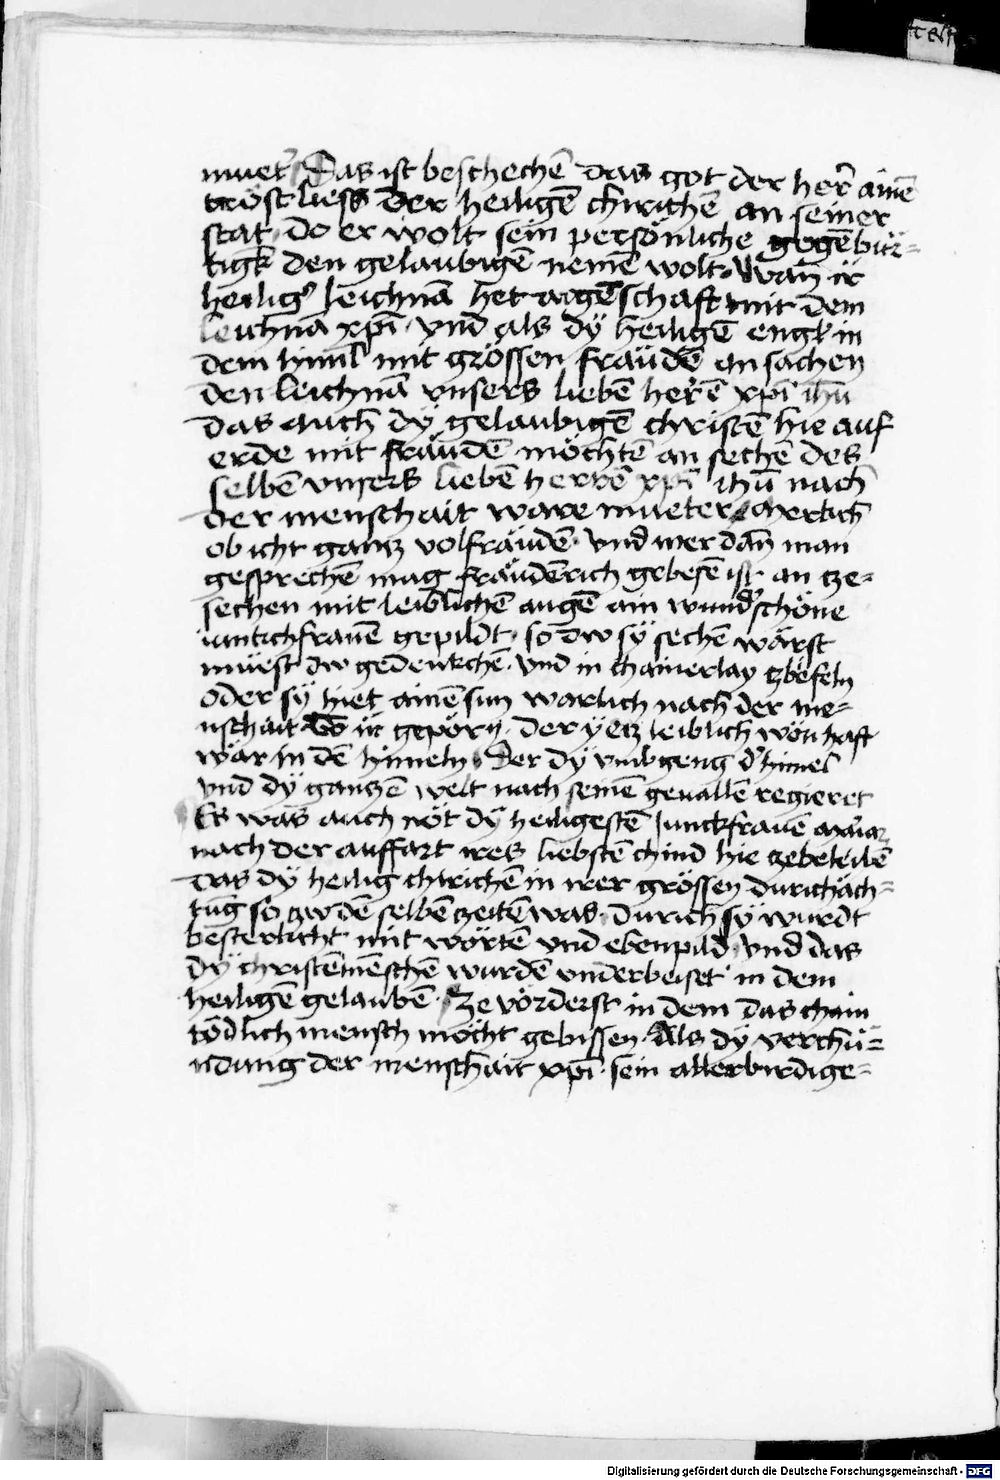 muet' Das ist beschechē das got der her̄ ainē
trost liess der heiligē chirichē an seiner
stat · do er wolt sein persönliche gegēbür=
tigk̄ den gelaubigē nemē wolt · Wan̄ ir
heilig' leichnā het aigēschaft mit dem
leichnā xp̄i · vnd als dÿ heiligē engl in
dem hyml mit grössen fräudē an sachen
den leichnā vnsers liebē her̄ē xp̄i ih̄u
das auch dÿ gelaubigē christē hie auf
erde mit fräudē möchtē an sechē des
selbē vnsers liebē herrē xp̄i ih̄u nach
der menschait ware mueter · Merkch
ob icht gantz volfräudē · vnd mer dan̄ man
gesprechē mag fräudērich gebesē ist · an tze=
sechen mit leiblichē augē ain wund'schöne
iunkchfrauē gepildt · so dw sÿ sechē wärst
müest dw gedenkchē · vnd in chainerlay tzbefeln
oder sÿ hiet ainē sun warlich nach der me=
nschait vō ir gepörn · der yetz leiblich wōnhaft
wär in dē himeln · Der dÿ vmbgeng d' himel
vnd dÿ gantzē welt nach seinē geuallē regieret
Es was auch nöt dÿ heiligestē Junckfrauē maria
nach der auffart ires liebstē chind hie tzebeleibē
das dÿ heilig chirichē in irer grössen durichäch=
tūg so tzw dē selbē tzeitē was · durich sÿ wurdt
besterkcht mit wörtē vnd ebenpild · vnd das
dÿ christēmēschē wurdē vnderbeiset in dem
heiligē gelaubē · Ze vörderst in dem das chain
tödlich mensch möcht gebissen · Als dÿ verchü=
ndung der menschait xp̄i · sein allerbirdige=
Digitalisierung gefördert durch die Deutsche Forschungsgemeinschaft - DFG